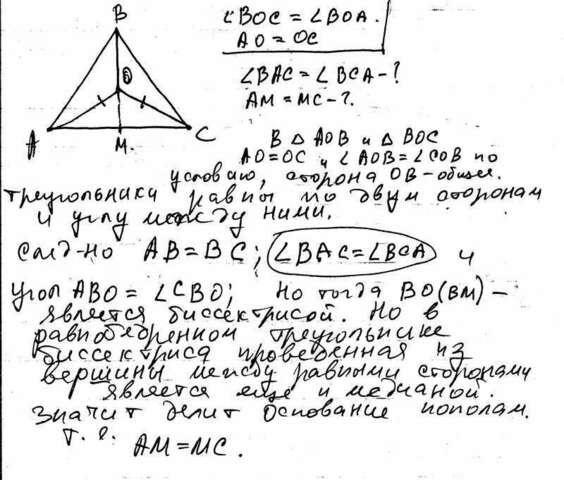 B
O
A
M.
C
∠BOC = ∠BOA.
AO = OC
∠BAC = ∠BCA - ?
AM = MC - ?.
В △ AOB и △ BOC
AO = OC и ∠AOB = ∠COB по
условию, сторона OB - общая.
треугольники равны по двум сторонам
и углу между ними.
След-но AB = BC; ∠BAC = ∠BCA и
угол ABO = ∠CBO; Но тогда BO(BM) -
является биссектрисой. Но в
равнобедренном треугольнике
биссектриса проведенная из
вершины между равными сторонами
является еще и медианой.
Значит делит основание пополам.
т. е.
AM = MC.